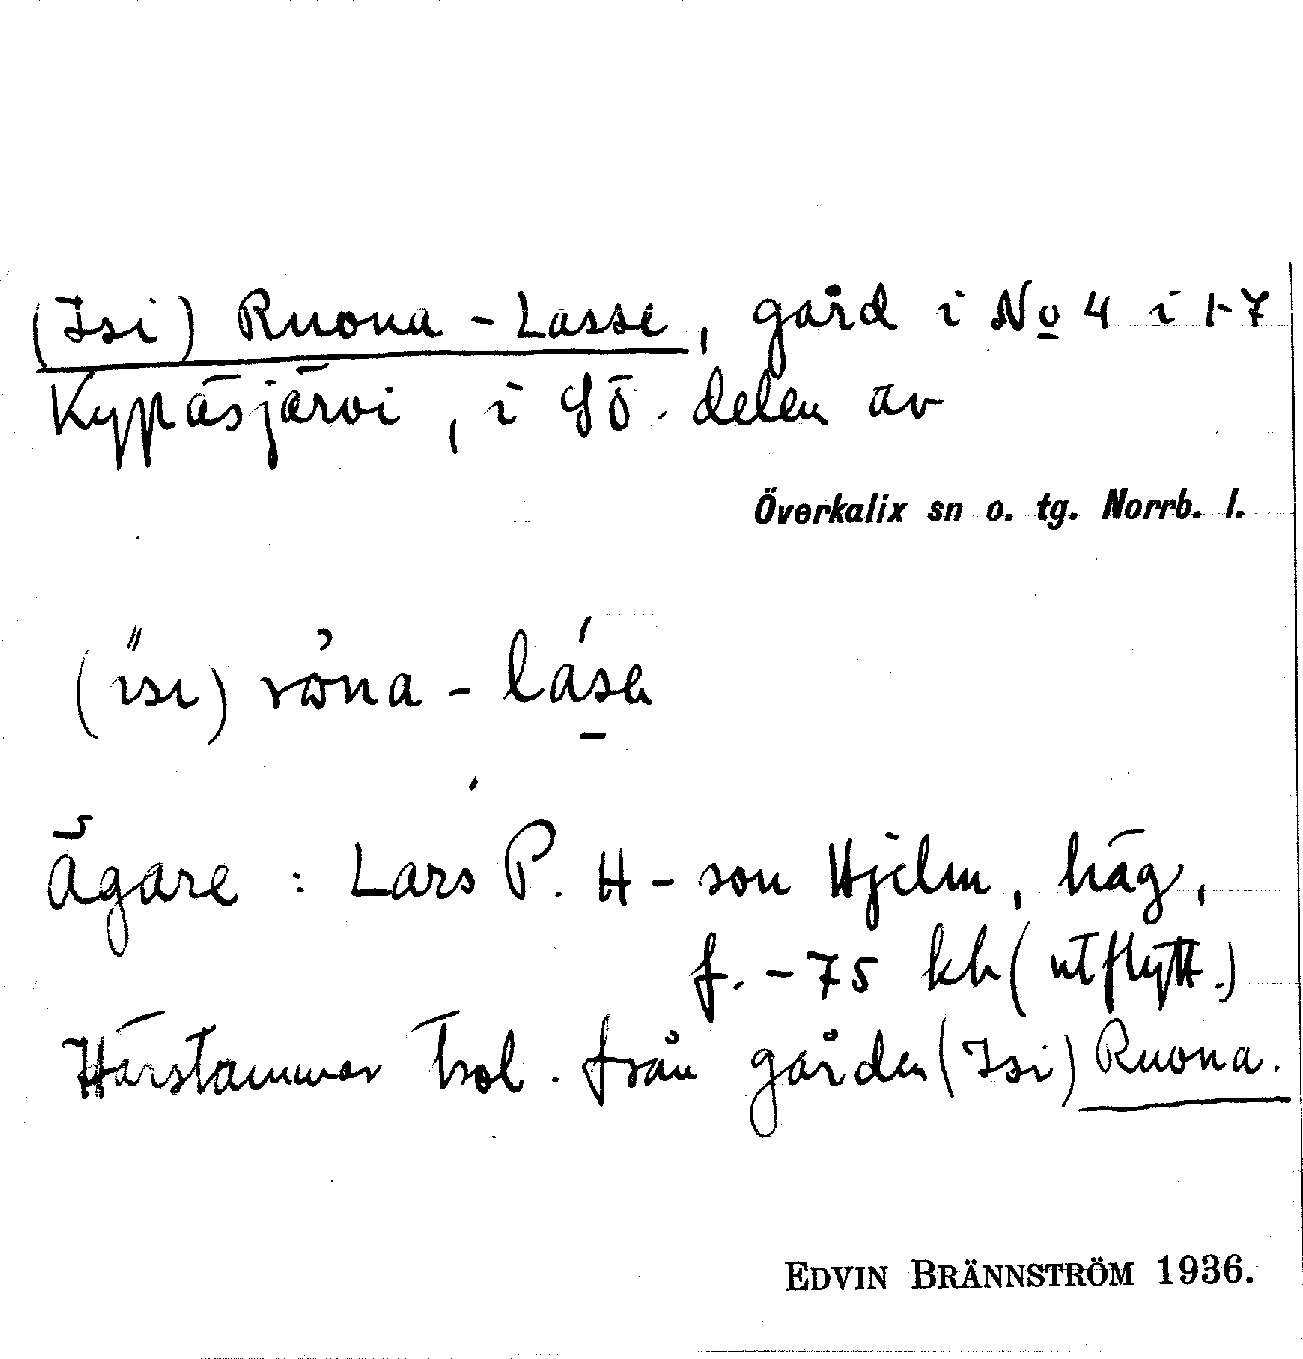 (Isi) Ruona-Lasse, gård i No 4 i 1-7
Kypäsjärvi, i SÖ. delen av
Överkalix sn o. tg. Norrb. l.
Ägare: Lars P. H-son Hjelm, häg,
f. -75 kh (utflytt.)
Härstammar trol. från gården (Isi) Ruona.
EDVIN BRÄNNSTRÖM 1936.